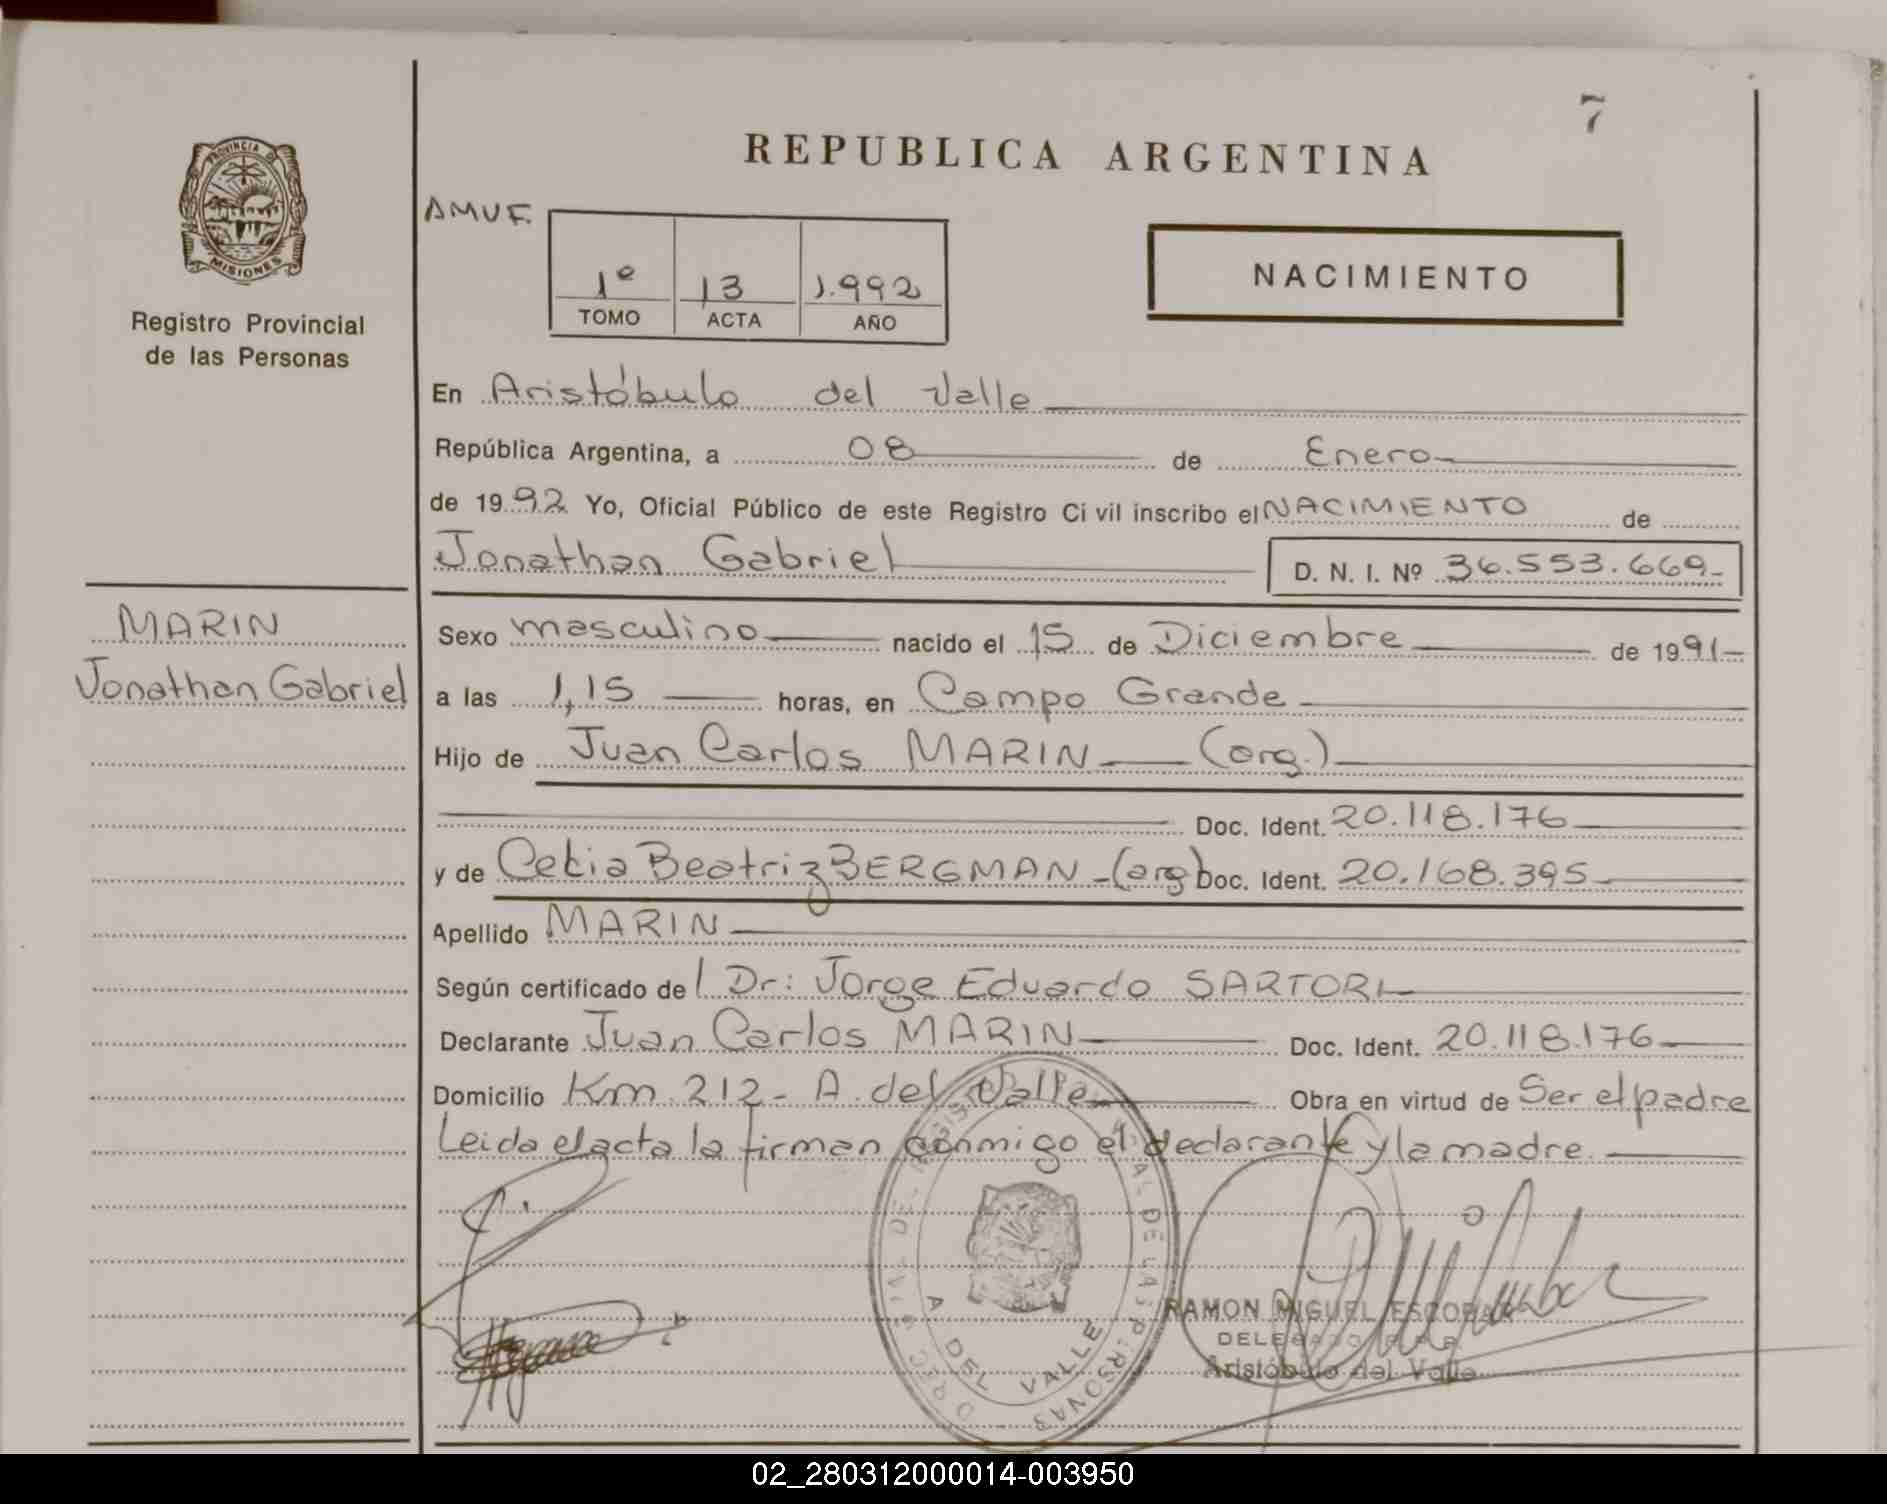 7
REPUBLICA ARGENTINA
PROVINCIA DE
MISIONES
Registro Provincial
de las Personas
AMUF.
1º 13 1.992
TOMO ACTA AÑO
NACIMIENTO
En Aristóbulo del Valle
República Argentina, a 08 de Enero
de 1992 Yo, Oficial Público de este Registro Ci vil inscribo el NACIMIENTO de
Jonathan Gabriel D. N. I. Nº 36.553.669-
MARIN
Jonathan Gabriel
Sexo masculino nacido el 15 de Diciembre de 1991-
a las 1,15 horas, en Campo Grande
Hijo de Juan Carlos MARIN (arg.)
Doc. Ident. 20.118.176
y de Celia Beatriz BERGMAN-(arg) Doc. Ident. 20.168.395
Apellido MARIN
Según certificado de l Dr: Jorge Eduardo SARTORI
Declarante Juan Carlos MARIN Doc. Ident. 20.118.176
Domicilio Km. 212- A. del Valle Obra en virtud de Ser el padre
Leida el acta la firman conmigo el declarante y la madre.
A. DEL VALLE
RAMON MIGUEL ESCOBAR
DELEGADO R.P.P.
Aristóbulo del Valle
02_280312000014-003950